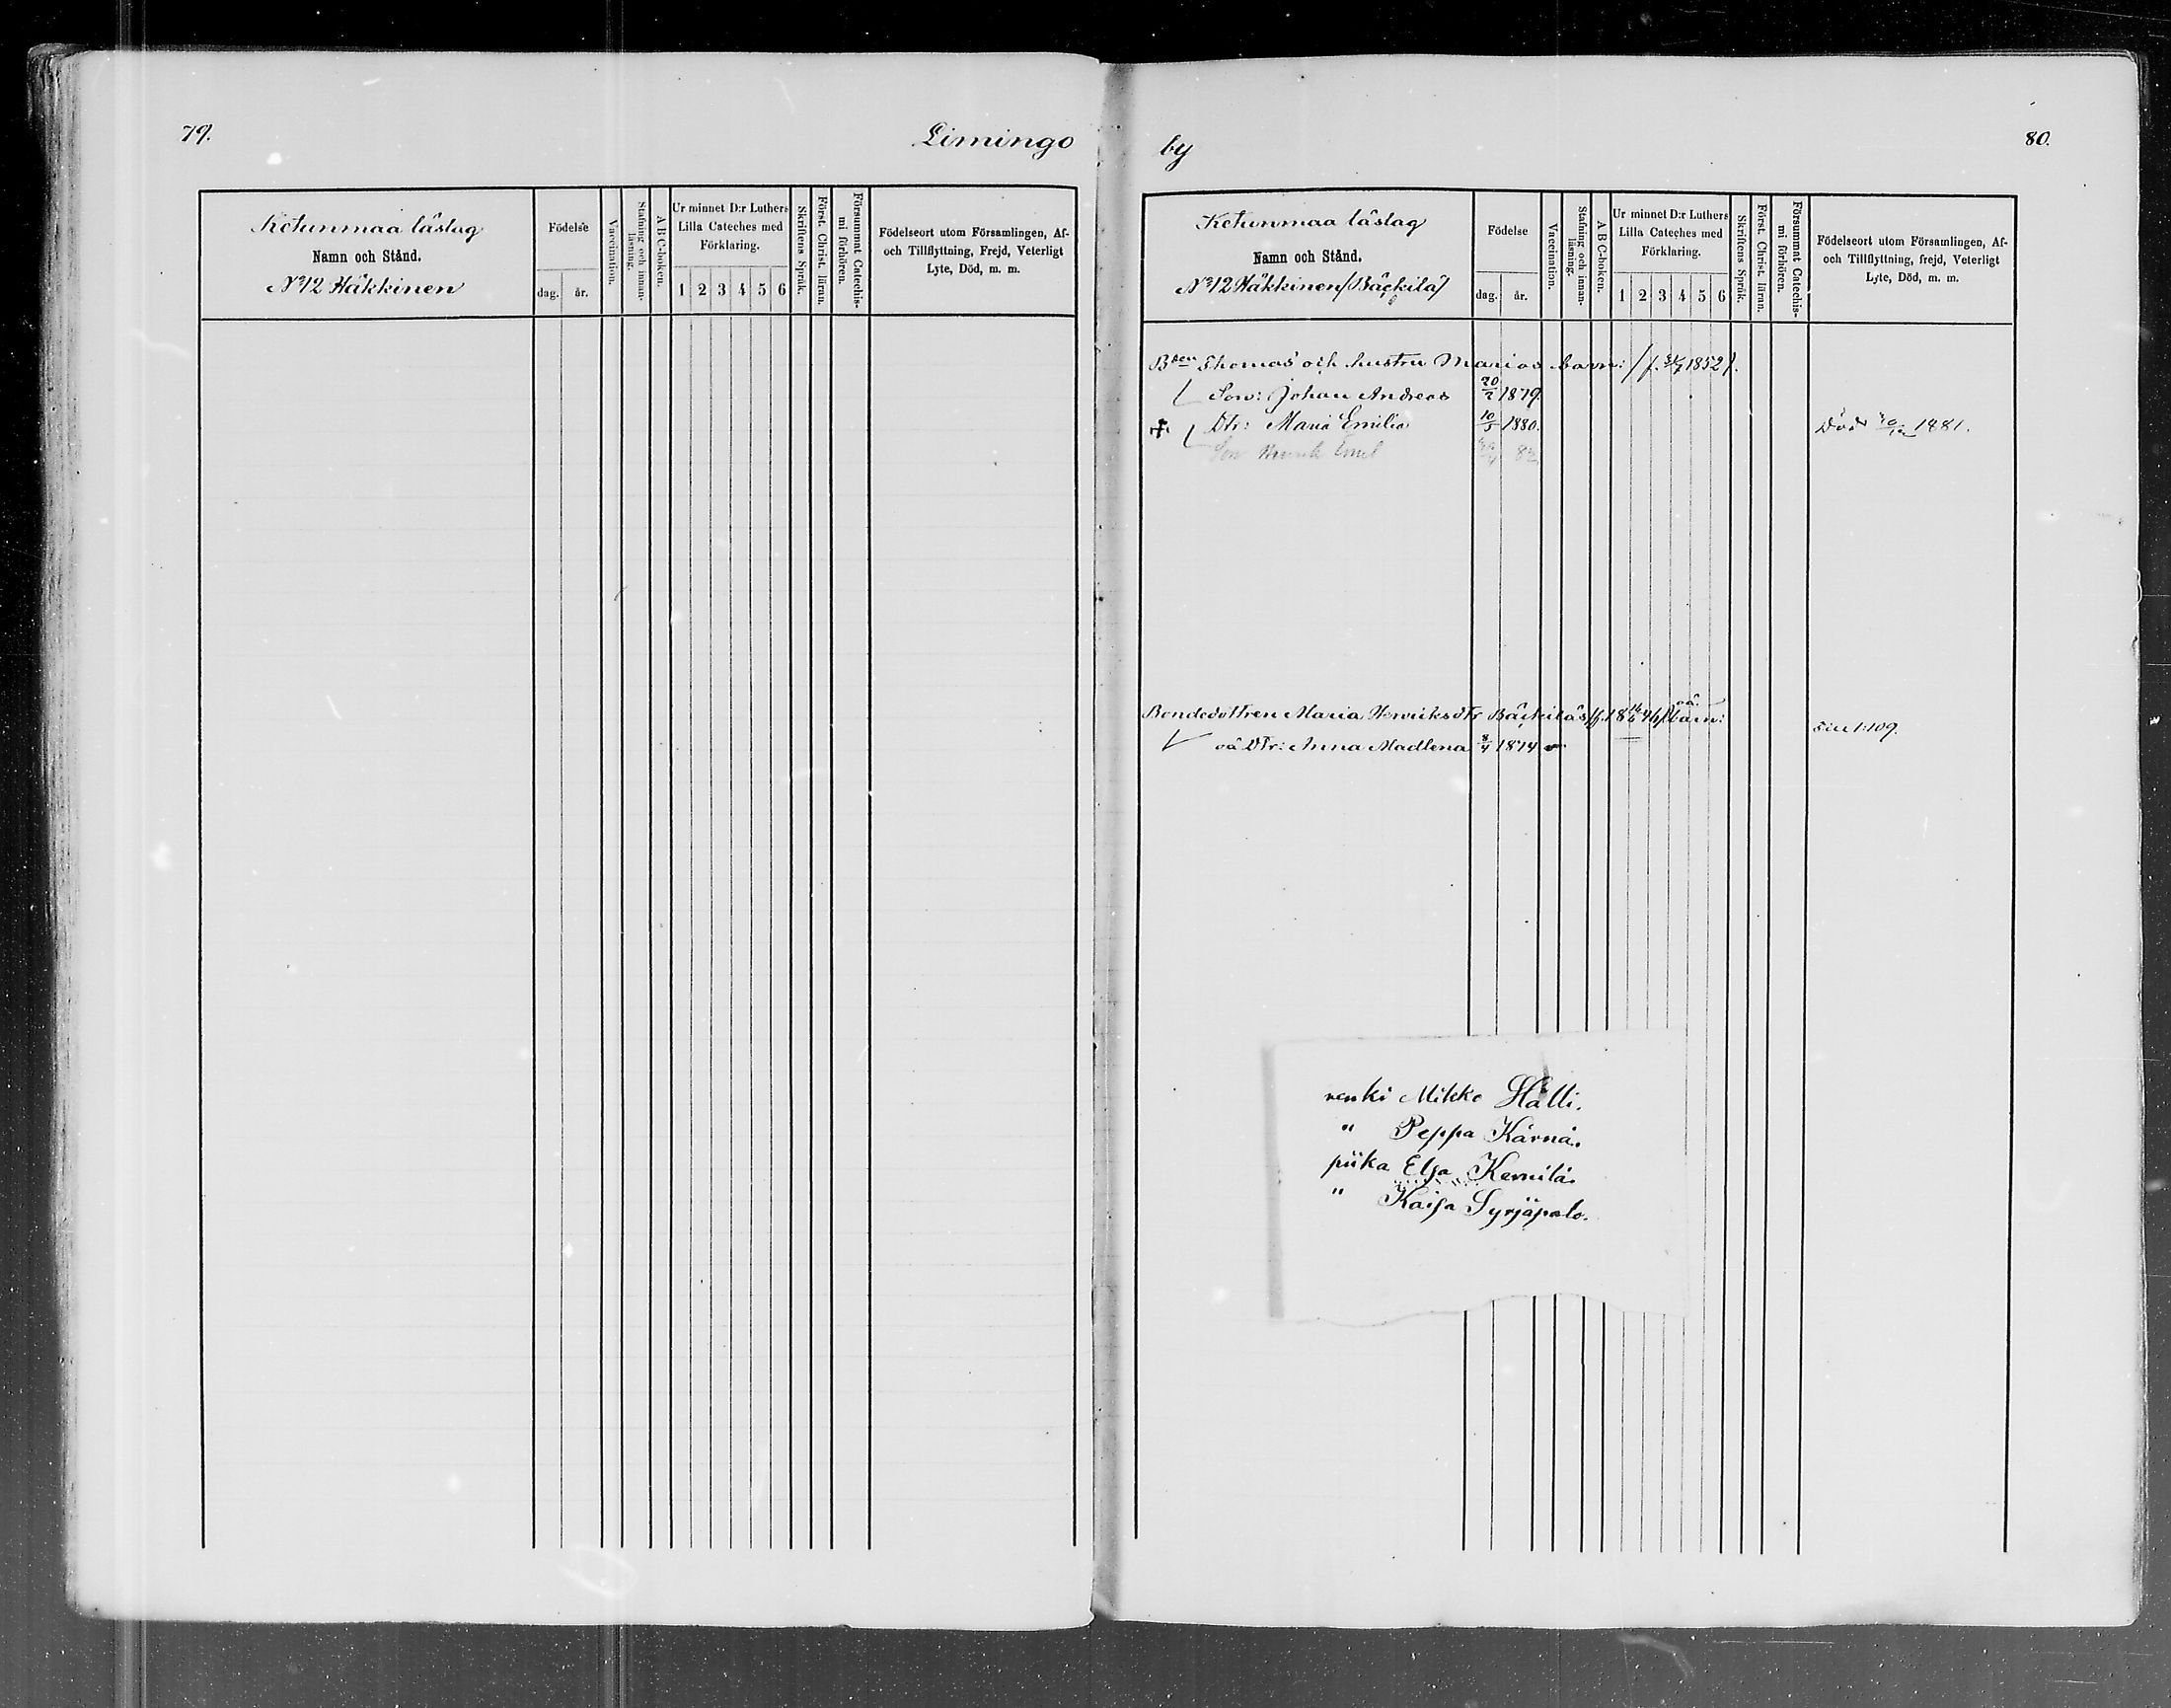 79.
Limingo
Ketunmaa läslag
Namn och Stånd.
No 12 Häkkinen
Födelse
dag. år.
Vaccination.
Stafning och innanläsning.
A B C-boken.
Ur minnet D:r Luthers
Lilla Cateches med
Förklaring.
1 2 3 4 5 6
Skriftens Språk.
Först. Christ. läran.
Försummat Catechismi förhören.
Födelseort utom Församlingen, Af-
och Tillflyttning, Frejd, Veterligt
Lyte, Död, m. m.
by
80.
Ketunmaa läslag
Namn och Stånd.
No 12 Häkkinen (Bäckilä)
Födelse
dag. år.
Vaccination.
Stafning och innanläsning.
A B C-boken.
Ur minnet D:r Luthers
Lilla Cateches med
Förklaring.
1 2 3 4 5 6
Skriftens Språk.
Först. Christ. läran.
Försummat Catechismi förhören.
Födelseort utom Församlingen, Af-
och Tillflyttning, frejd, Veterligt
Lyte, Död, m. m.
Bden Thomas och hustru Marias barn: 1852).
Son: Johan Andreas 20/2 1879.
Dtr: Maria Emilia 10/5 1880. Död 1881.
Son Henrik Emil 82
Bondedottren Maria Henriksdtr Bäckiläs oä. barn:
oä Dtr: Anna Madlena 8/4 1874 Sic 1:109.
renki Mikko Halli.
" Peppa Kärnä.
piika Elsa Kemilä.
" Kaisa Syrjäpalo.